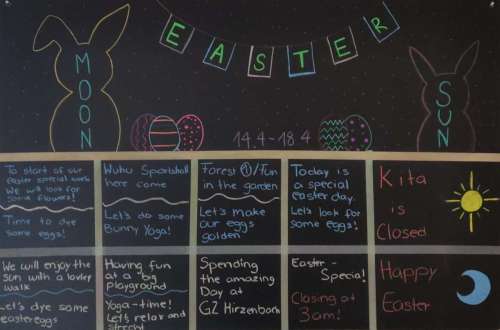 EASTER
MOON
SUN
14.4-18.4
To start of our
easter special week
We will look for
some flowers!
Time to dye
some eggs!
Wuhu Sportshall
here come
Let's do some
Bunny Yoga!
Forest ①/Fun
in the garden
Let's make
our eggs
golden
Today is
a special
easter day.
Let's look for
some eggs!
Kita
is
Closed
We will enjoy the
sun with a lovley
walk
Let's dye some
easter eggs
Having fun
at a big
playground
Yoga-time!
Let's relax and
strecht
Spending
the amazing
Day at
GZ Hirzenbach
Easter -
Special!
Closing at
3am!
Happy
Easter